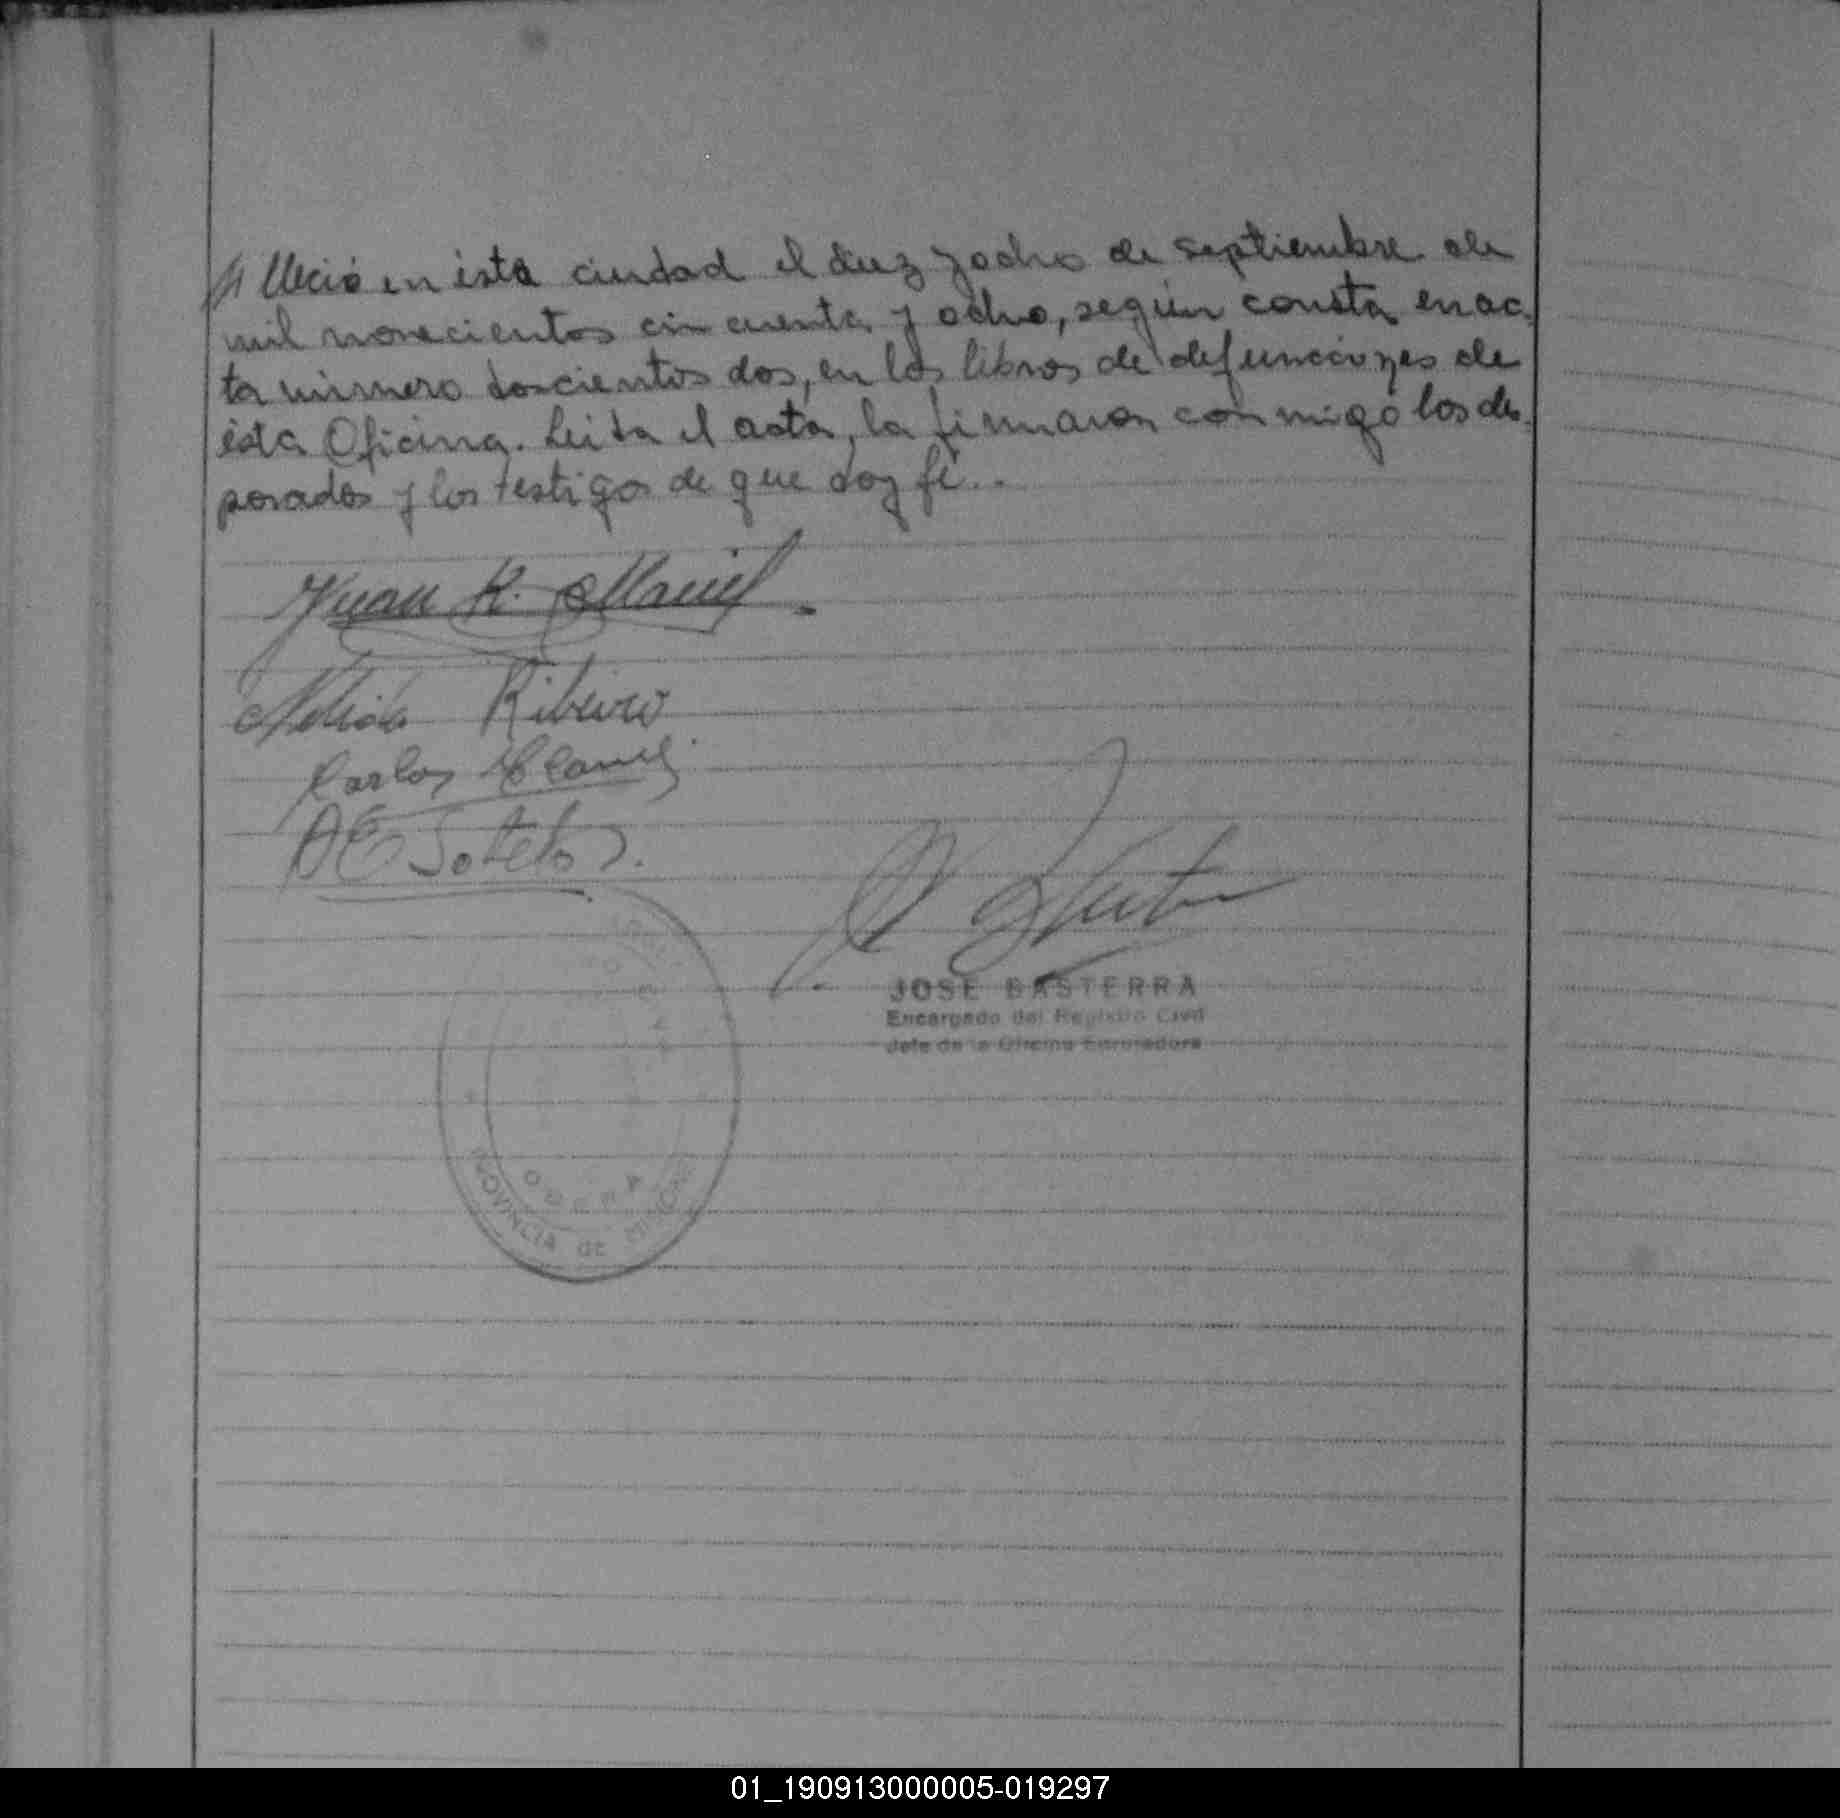 lleció en ésta ciudad el diez y ocho de septiembre de
mil novecientos cincuenta y ocho, según consta en ac-
ta número doscientos dos, en los libros de defunciones de
ésta Oficina. Leída el acta, la firmaron conmigo los des-
posados y los testigos de que doy fé..
Juan R. Maciel
Nélida Ribeiro
Carlos
A E Sotelo
JOSE BASTERRA
Encargado del Registro Civil
Jefe de la Oficina Enroladora
PROVINCIA DE MISIONES
01_190913000005-019297